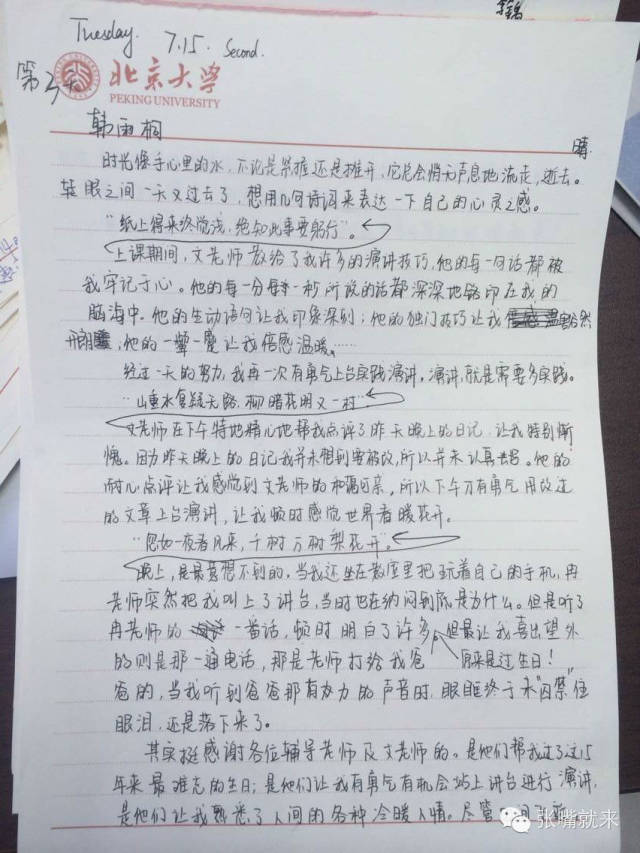 Tuesday. 7.15. Second.
第3天
北京大学
PEKING UNIVERSITY
韩雨桐
晴
时光像手心里的水,不论是紧握还是摊开,它总会悄无声息地流走,逝去。
转眼之间一天又过去了,想用几句诗词来表达一下自己的心灵之感。
“纸上得来终觉浅,绝知此事要躬行”。
上课期间,文老师教给了我许多的演讲技巧,他的每一句话都被
我牢记于心。他的每一分每一秒所说的话都深深地烙印在我的
脑海中。他的生动语句让我印象深刻;他的独门技巧让我豁然
开朗;他的一颦一蹙让我倍感温暖……
经过一天的努力,我再一次有勇气上台实践演讲,演讲,就是需要多实践。
“山重水复疑无路,柳暗花明又一村”
文老师在下午特地精心地帮我点评了昨天晚上的日记,让我特别惭
愧。因为昨天晚上的日记我并未想到要被改,所以并未认真去写。他的
耐心点评让我感觉到文老师的和蔼可亲,所以下午才有勇气用改过
的文章上台演讲,让我顿时感觉世界春暖花开。
“忽如一夜春风来,千树万树梨花开”。
晚上,是最意想不到的,当我还坐在教室里把玩着自己的手机,冉
老师突然把我叫上了讲台,当时也在纳闷到底是为什么。但是听了
冉老师的一番话,顿时明白了许多,原来是过生日!但最让我喜出望外
的则是那一通电话,那是老师打给我爸
爸的,当我听到爸爸那有力的声音时,眼眶终于未“囚禁”住
眼泪,还是落下来了。
其实挺感谢各位辅导老师及文老师的。是他们帮我过了这15
年来最难忘的生日;是他们让我有勇气有机会站上讲台进行演讲,
是他们让我熟悉了人间的各种冷暖人情。尽管
张嘴就来